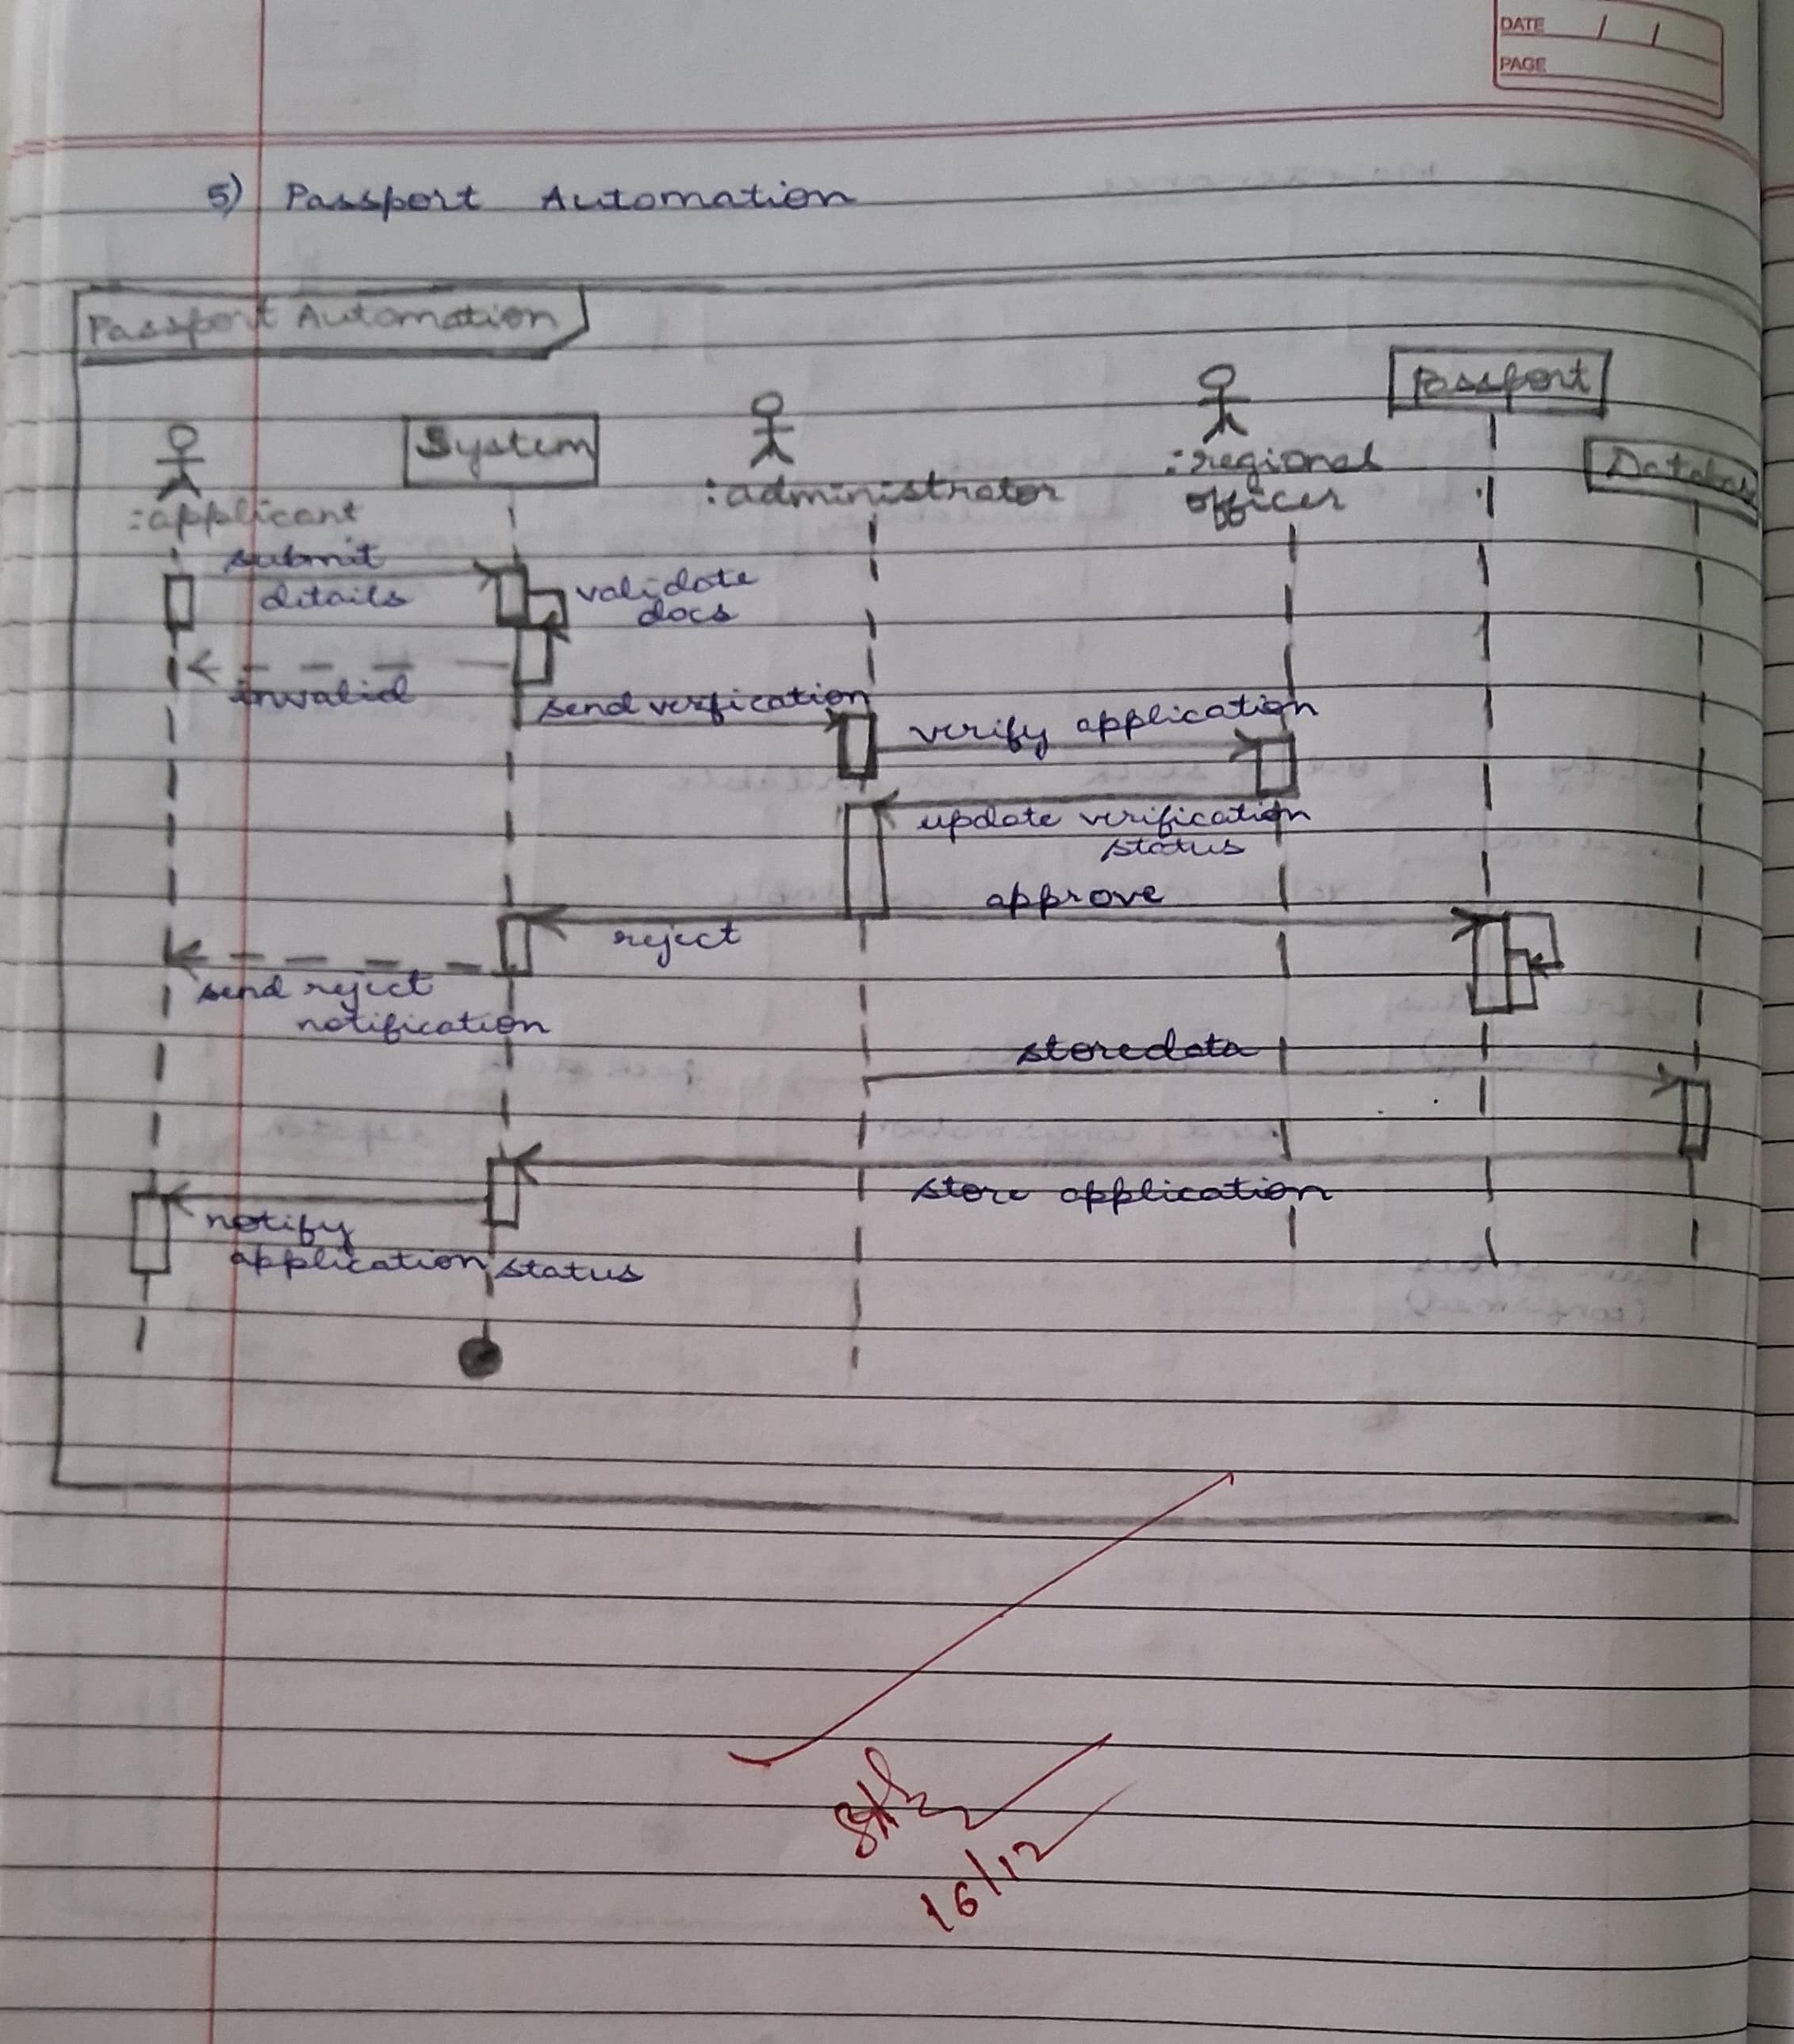 DATE / /
PAGE
5) Passport Automation
Passport Automation
Passport
System
:regional
officer
Databas
:administrator
:applicant
submit
details
validate
docs
invalid
send verfication
verify application
update verification
status
approve
reject
send reject
notification
storedata
store application
notify
application status
16/12